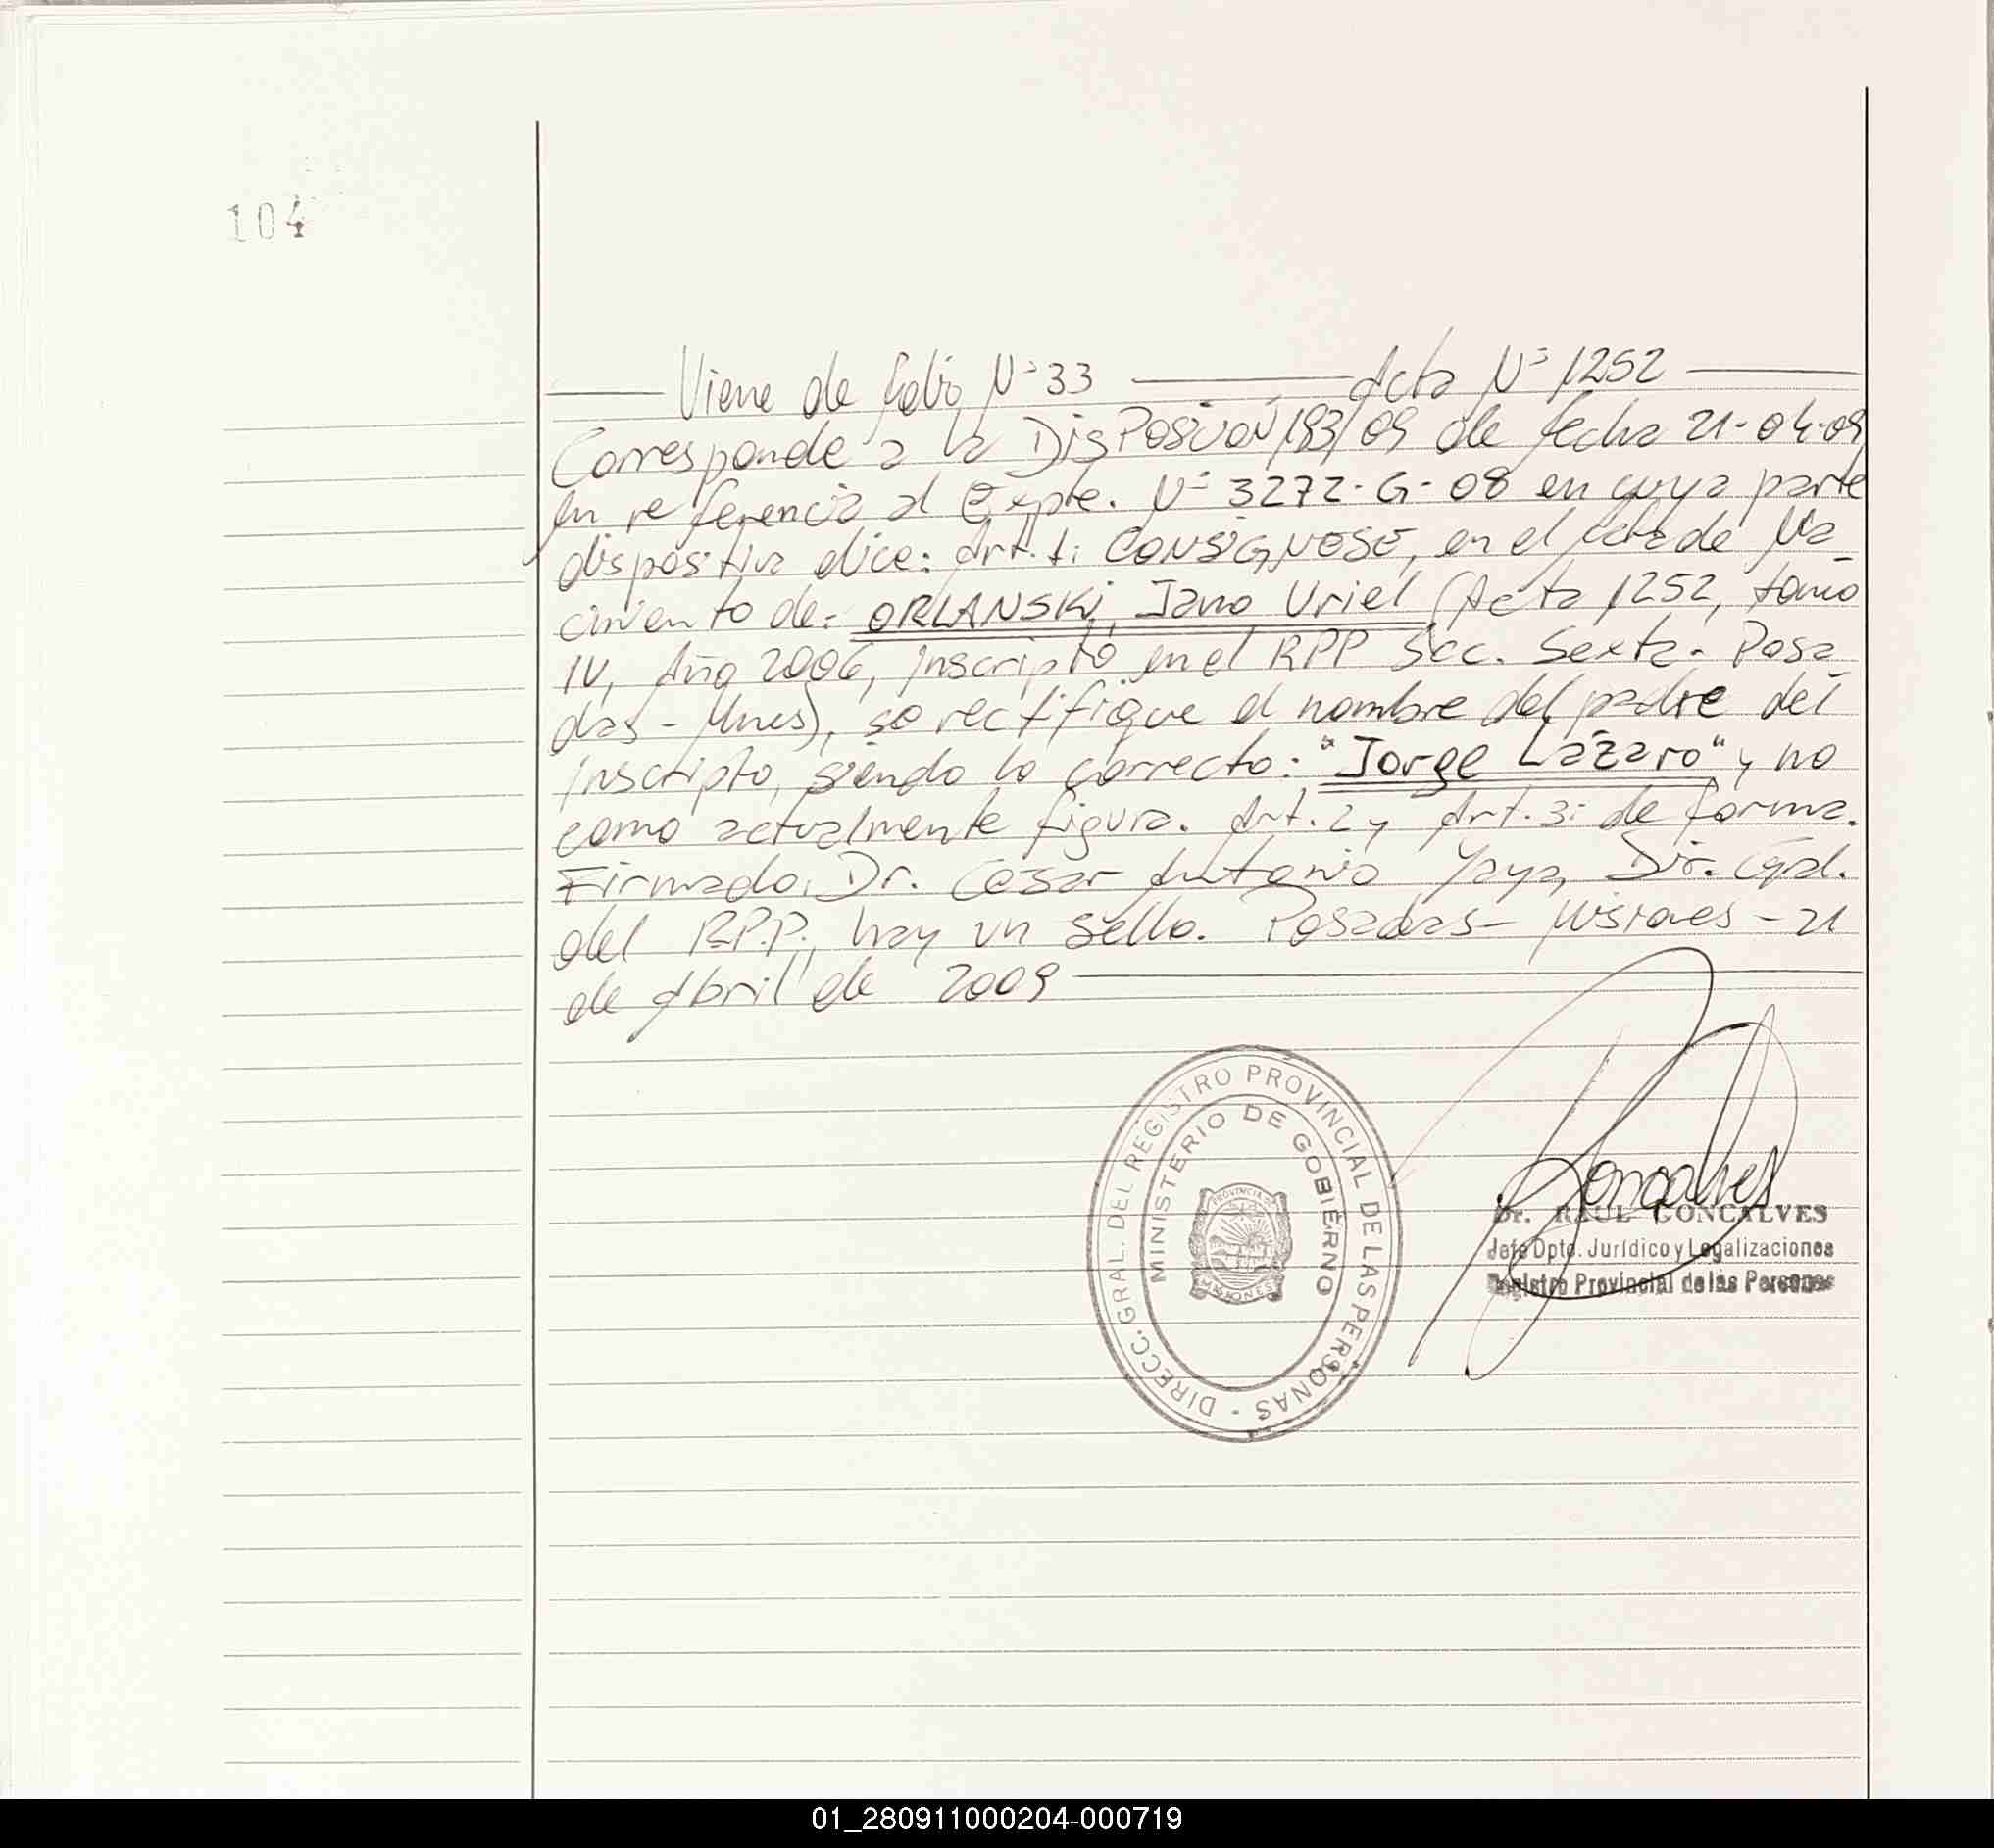 104
Viene de folio N° 33 Acta N° 1252
Corresponde a la DISPOSICIÓN 193/09 de fecha 21-04-09
en referencia al Expte. N° 3272-G-08 en cuya parte
dispositiva dice: Art. 1: CONSIGNESE, en el Acta de Na_
cimiento de: ORLANSKI, Jano Uriel (Acta 1252, tomo
IV, Año 2006, inscripto en el RPP Scc. Sexta - Posa_
das - Mnes), se rectifique el nombre del padre del
inscripto, siendo lo correcto: "Jorge Lázaro" y no
como actualmente figura. Art. 2 y Art. 3: de forma.
Firmado: Dr. César Antonio Yaya, Dir. Gral.
del R.P.P., hay un sello. Posadas - Misiones - 21
de Abril de 2009
DIRECC. GRAL. DEL REGISTRO PROVINCIAL DE LAS PERSONAS -
MINISTERIO DE GOBIERNO
PROVINCIA DE
MISIONES
Goncalves
Dr. RAUL GONCALVES
Jefe Dpto. Jurídico y Legalizaciones
Registro Provincial de las Personas
01_280911000204-000719